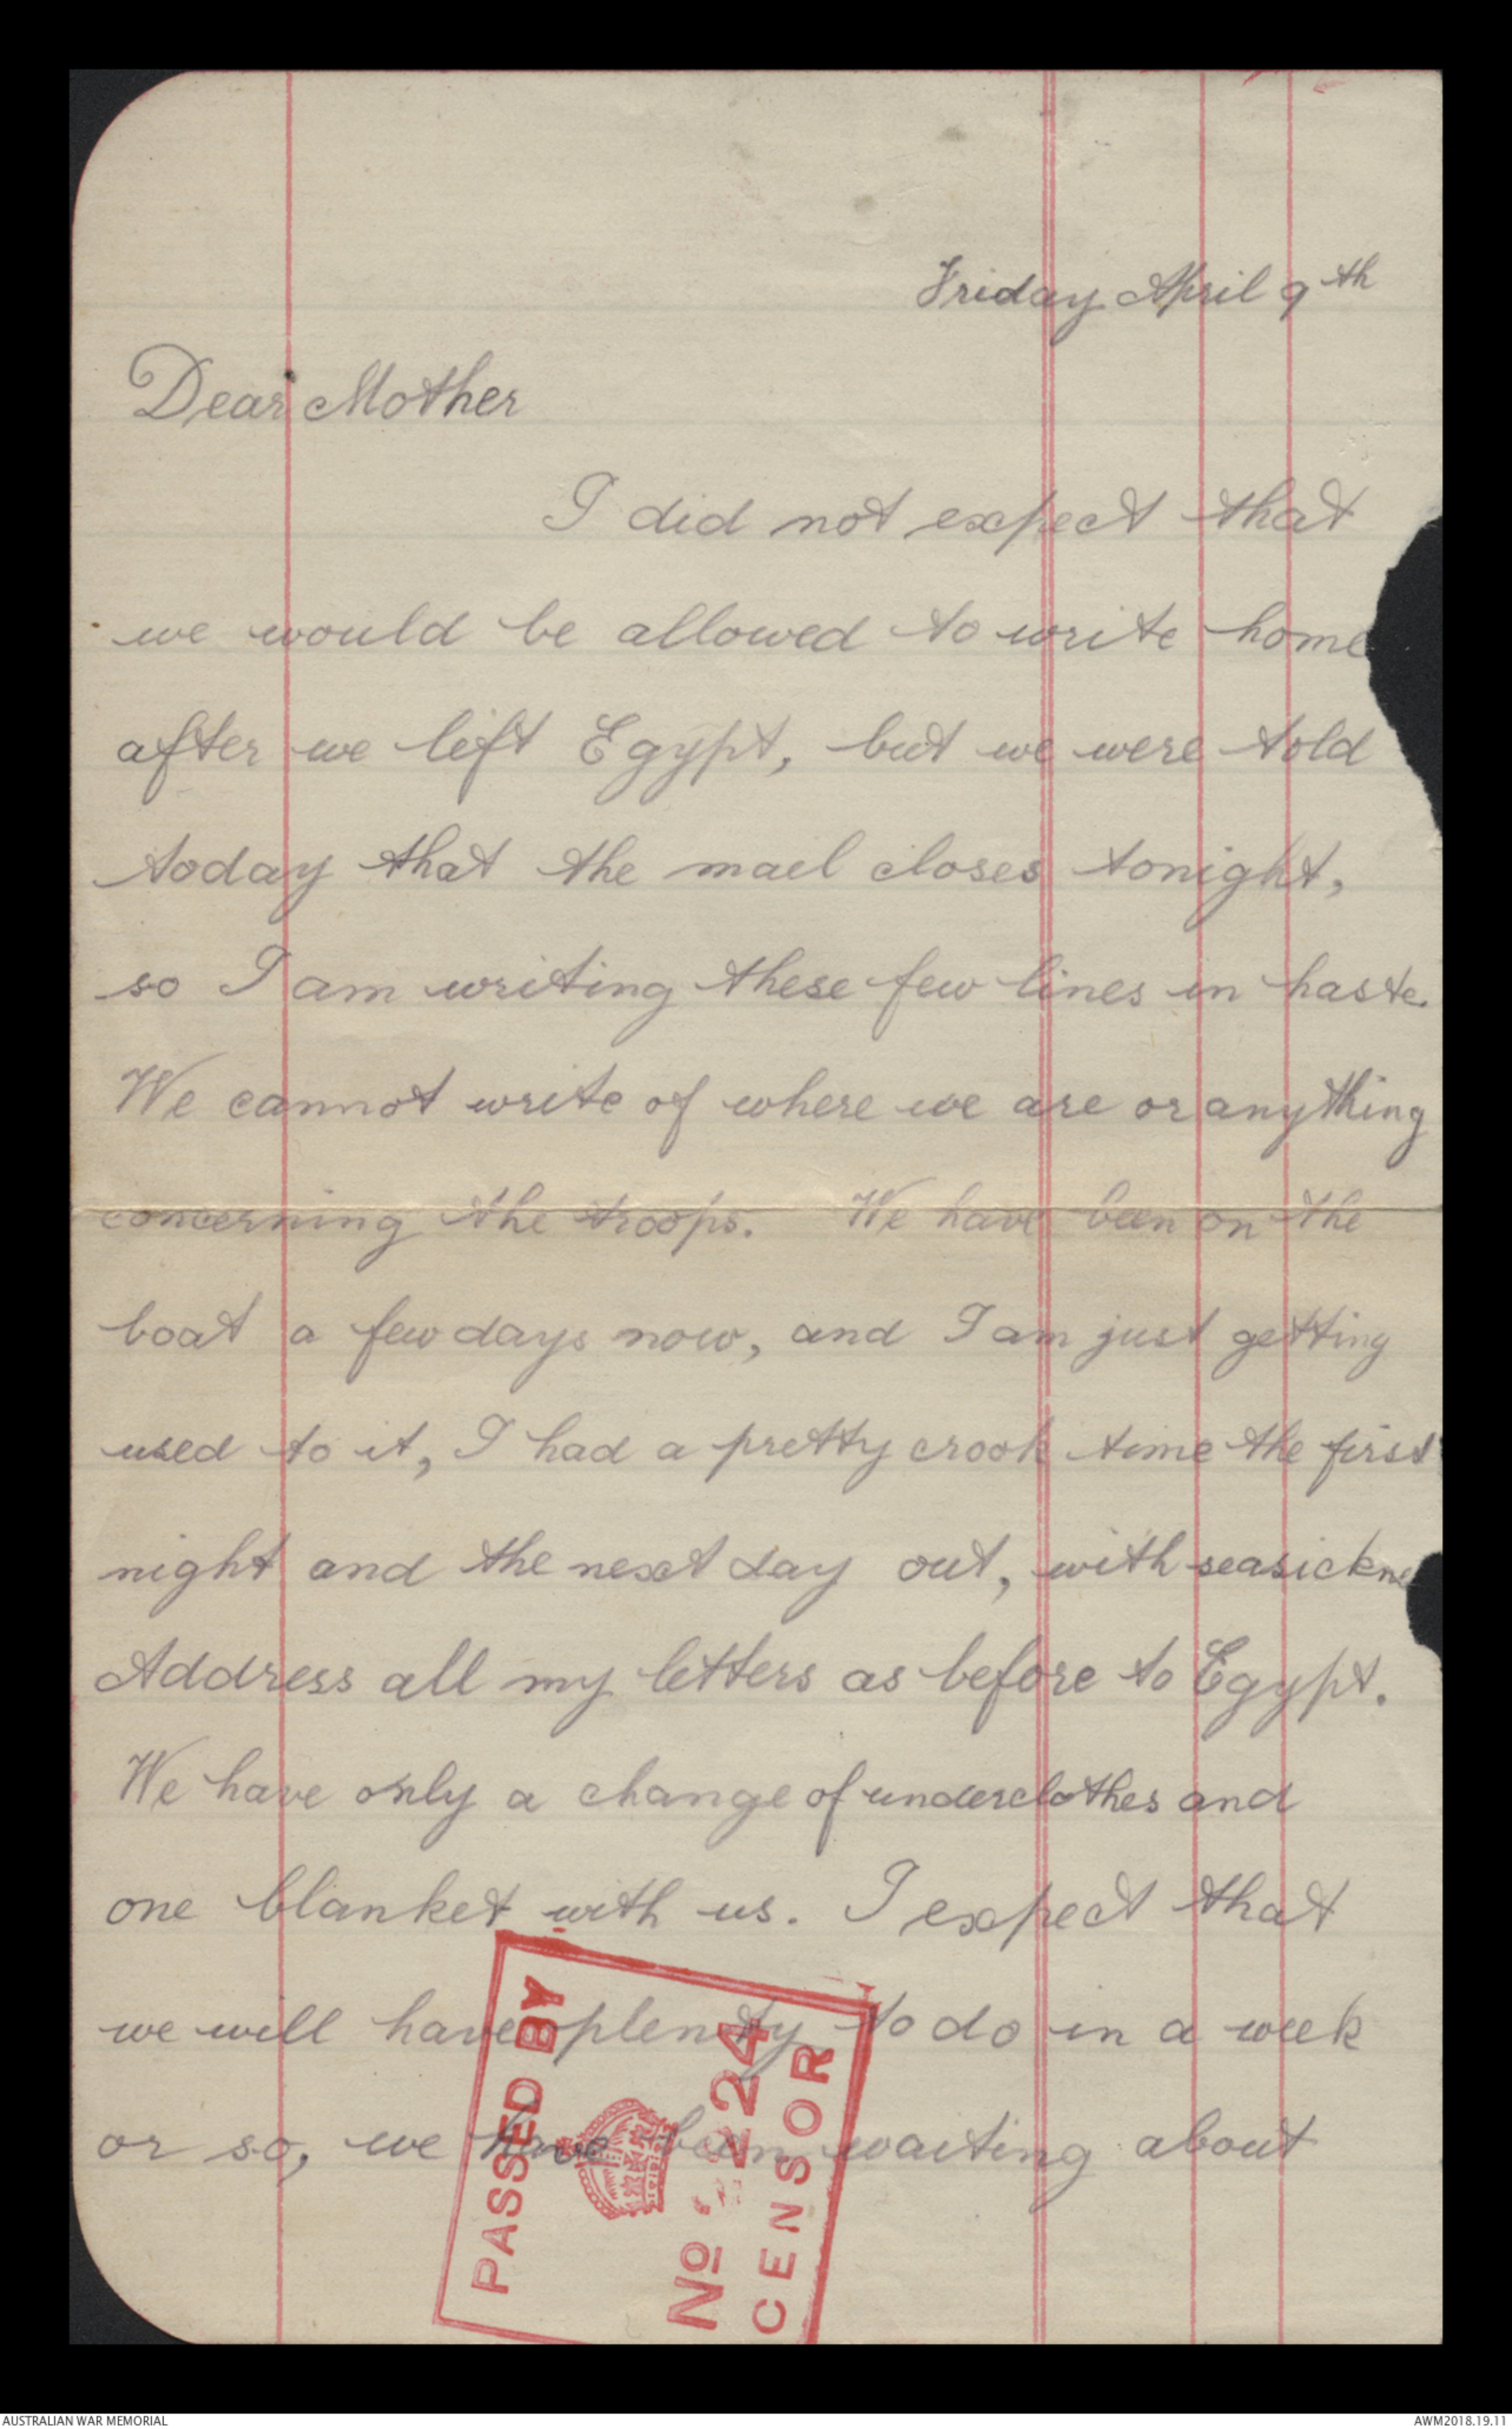 Friday April 9th
Dear Mother
I did not expect that
we would be allowed to write home
after we left Egypt, but we were told
today that the mail closes tonight,
so I am writing these few lines in haste.
We cannot write of where we are or anything
concerning the troops. We have been on the
boat a few days now, and I am just getting
used to it, I had a pretty crook time the first
night and the next day out, with seasickne
Address all my letters as before to Egypt.
We have only a change of underclothes and
one blanket with us. I expect that
we will have plenty to do in a week
or so, we have been waiting about
PASSED BY
No 224
CENSOR
AUSTRALIAN WAR MEMORIAL
AWM2018.19.11